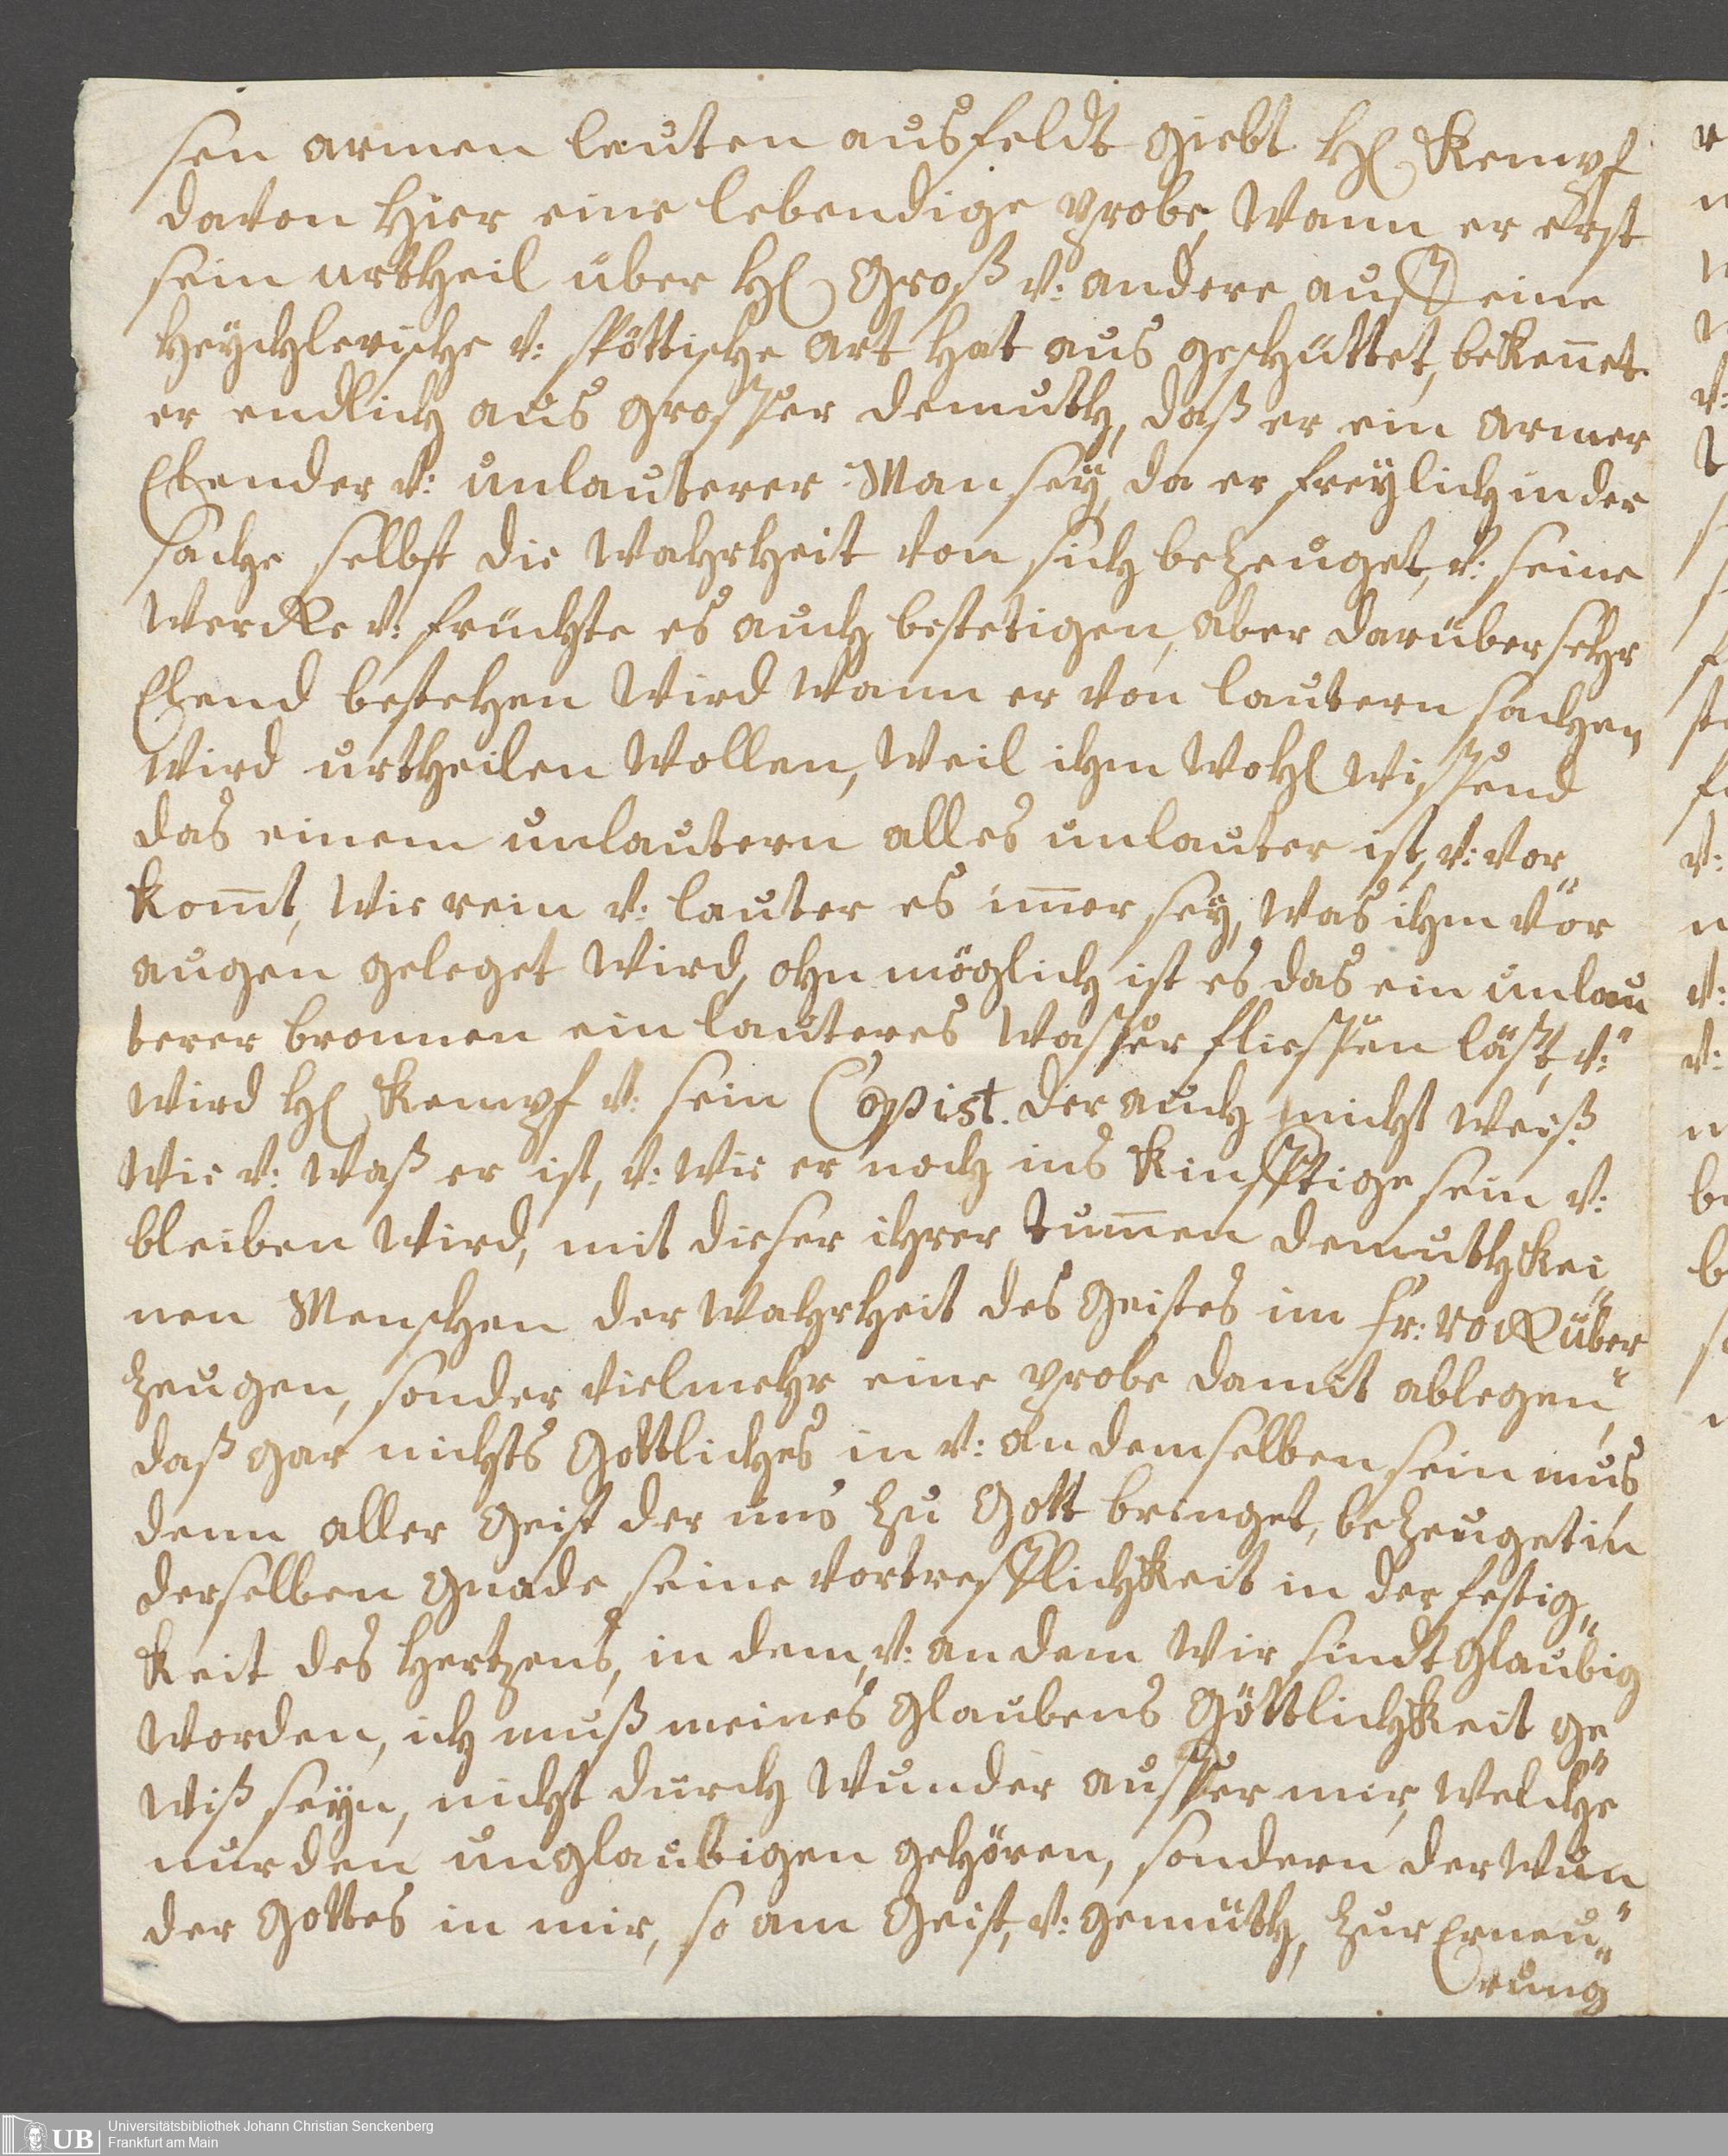 sen armen leuten ausfeldt giebt H Kempf
davon hier eine lebendige probe, Wann er erst
sein urtheil über H Groß v: andere auff eine
heuchlerische v: spöttische art hat aus geschüttet, bekeñet
er endlich aus grosser demuth, daß er ein armer
Elender v: unlauterer Man sey, da er freylich in der
sache selbst die Wahrheit von sich bezeuget, v: seine
Wercke v: früchte es auch bestetigen, aber darüber sehr
Elend bestehen Wird Wann er von lautern sachen
Wird urtheilen Wollen, Weil ihm Wohl Wissend
das einem unlautern alles unlauter ist, v: vor„
kom̄t, Wie rein v: lauter es im̄er sey, Was ihm vor
augen geleget Wird, ohn möglich ist es das ein unlau„
terer bronnen ein lauteres Wasser fliessen läst, v:
Wird H Kempf v: sein Copist. der auch nicht Weiß.
Wie v: Waß er ist, v: Wie er noch ins Kinfftige sein v:
bleiben Wird, mit dieser ihrer tum̄en demuth kei„
nen Menschen der Wahrheit des Geistes im Fr: Rock über„
zeugen, sonder vielmehr eine probe damit ablegen,
daß gar nichts Gottliches in v: an demselben sein mus
denn aller Geist der uns zu Gott bringet, bezeuget in
derselben Gnade seine vortrefflichkeit in der festig„
keit des Hertzens, in dem, v: an dem Wir sindt glaubig
Worden, ich muß meines glaubens Göttlichkeit ge„
Wiß seyn, nicht durch Wunder ausser mir, Welche
nur den unglaubigen gehören, sondern der Wun„
der Gottes in mir, so am Geist, v: gemüth, zur Erneu„
rung
Universitätsbibliothek Johann Christian Senckenberg
Frankfurt am Main
UB